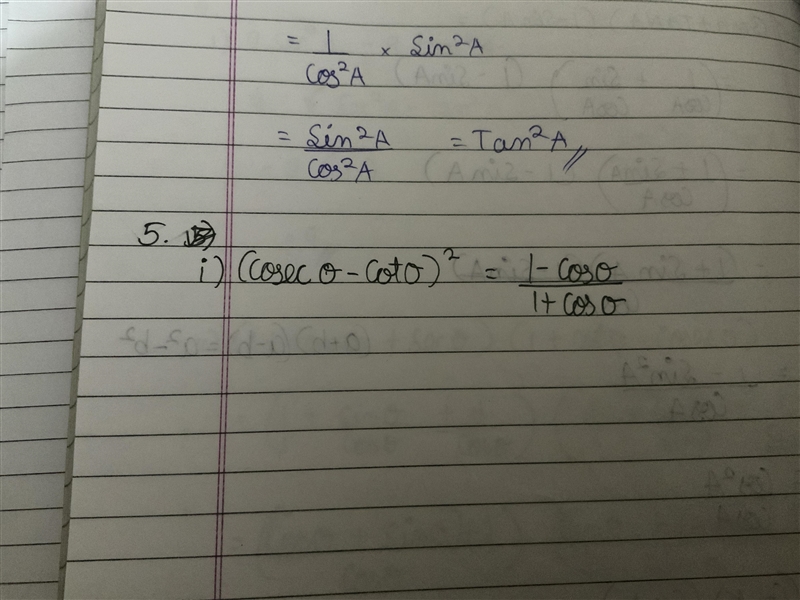 = 1/Cos²A × Sin²A
= Sin²A/Cos²A = Tan²A //
5.
i) (Cosec θ - Cot θ)² = 1 - Cos θ/1 + Cos θ